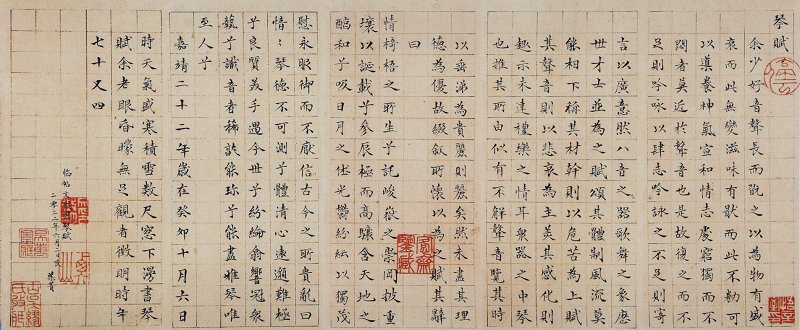 琴賦
余少好音聲長而翫之以為物有盛
衰而此無變滋味有猒而此不勌可
以導養神氣宣和情志處窮獨而不
悶者莫近於聲音也是故復之而不
足則吟咏以肆志吟詠之不足則寄
言以廣意然八音之器歌舞之象歷
世才士並為之賦頌其體制風流莫
能相下稱其材幹則以危苦為上賦
其聲音則以悲哀為主美其感化則
趣示未達禮樂之情耳衆器之中琴
也推其所由似有不解聲音覽其時
以垂涕為貴麗則麗矣然未盡其理
德為優故綴叙所懷以為之賦其辭
曰
情椅梧之所生兮託峻嶽之崇岡披重
壤以誕載兮參辰極而高驤含天地之
醕和兮吸日月之休光鬱紛紜以獨茂
慰永服御而不厭信古今之所貴亂曰
愔〻琴德不可測兮體清心遠邈難極
兮良質美手遇今世兮紛綸翕響冠衆
藝兮識音者稀誰能珍兮能盡雅琴唯
至人兮
嘉靖二十二年歲在癸卯十月六日
時天氣盛寒積雪數尺窓下漫書琴
賦余老眼昏矇無足觀者徵明時年
七十又四